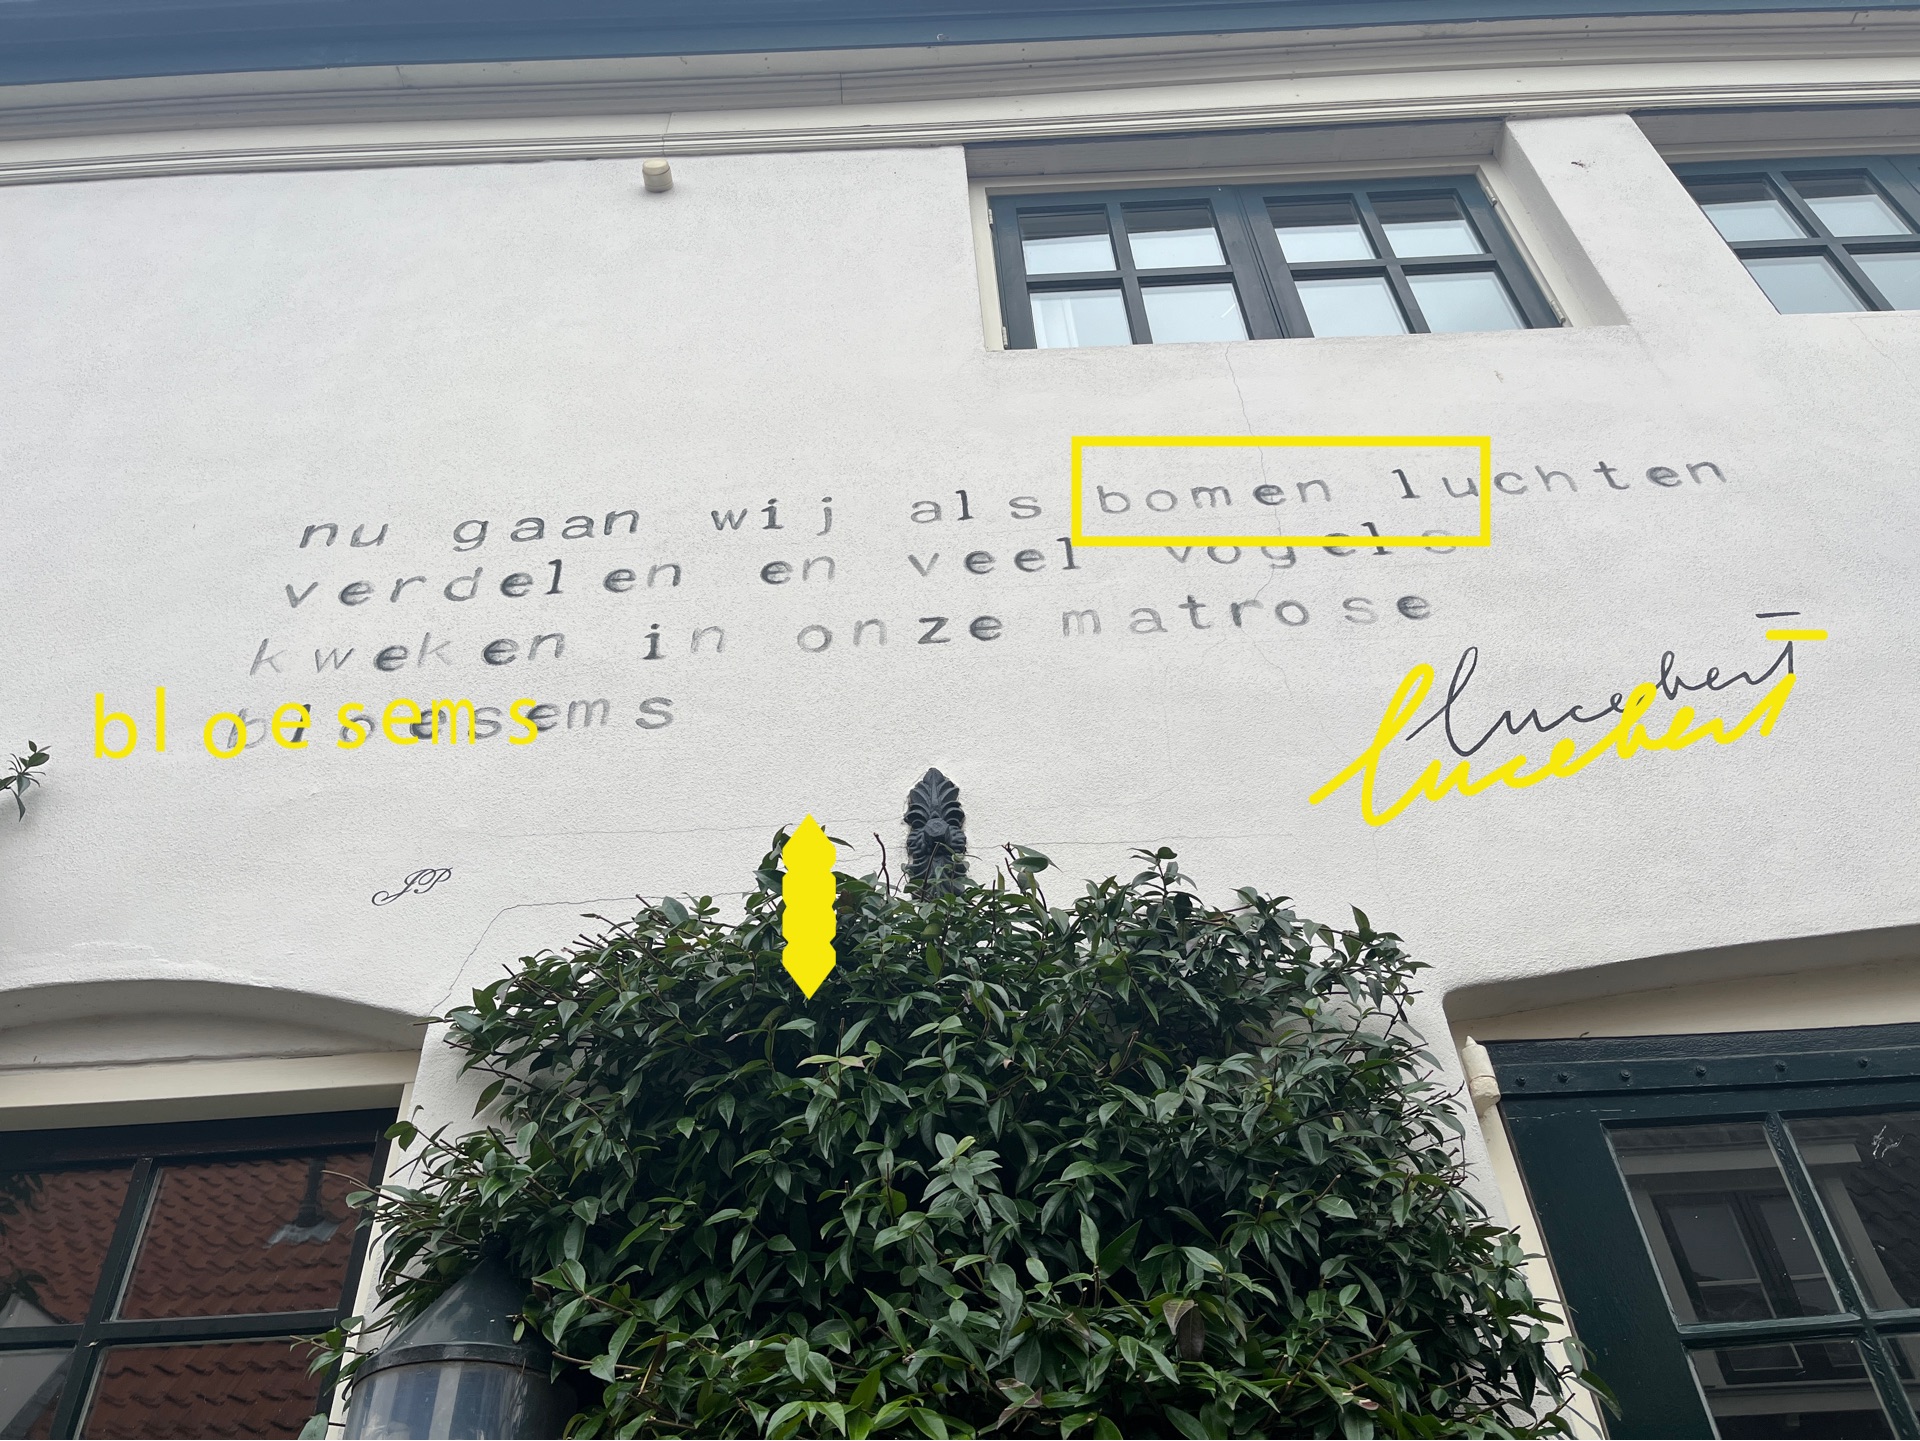 nu gaan wij als bomen luchten
verdelen en veel vogels
kweken in onze matrose
bloesems
bloesems
lucebert
lucebert
JP